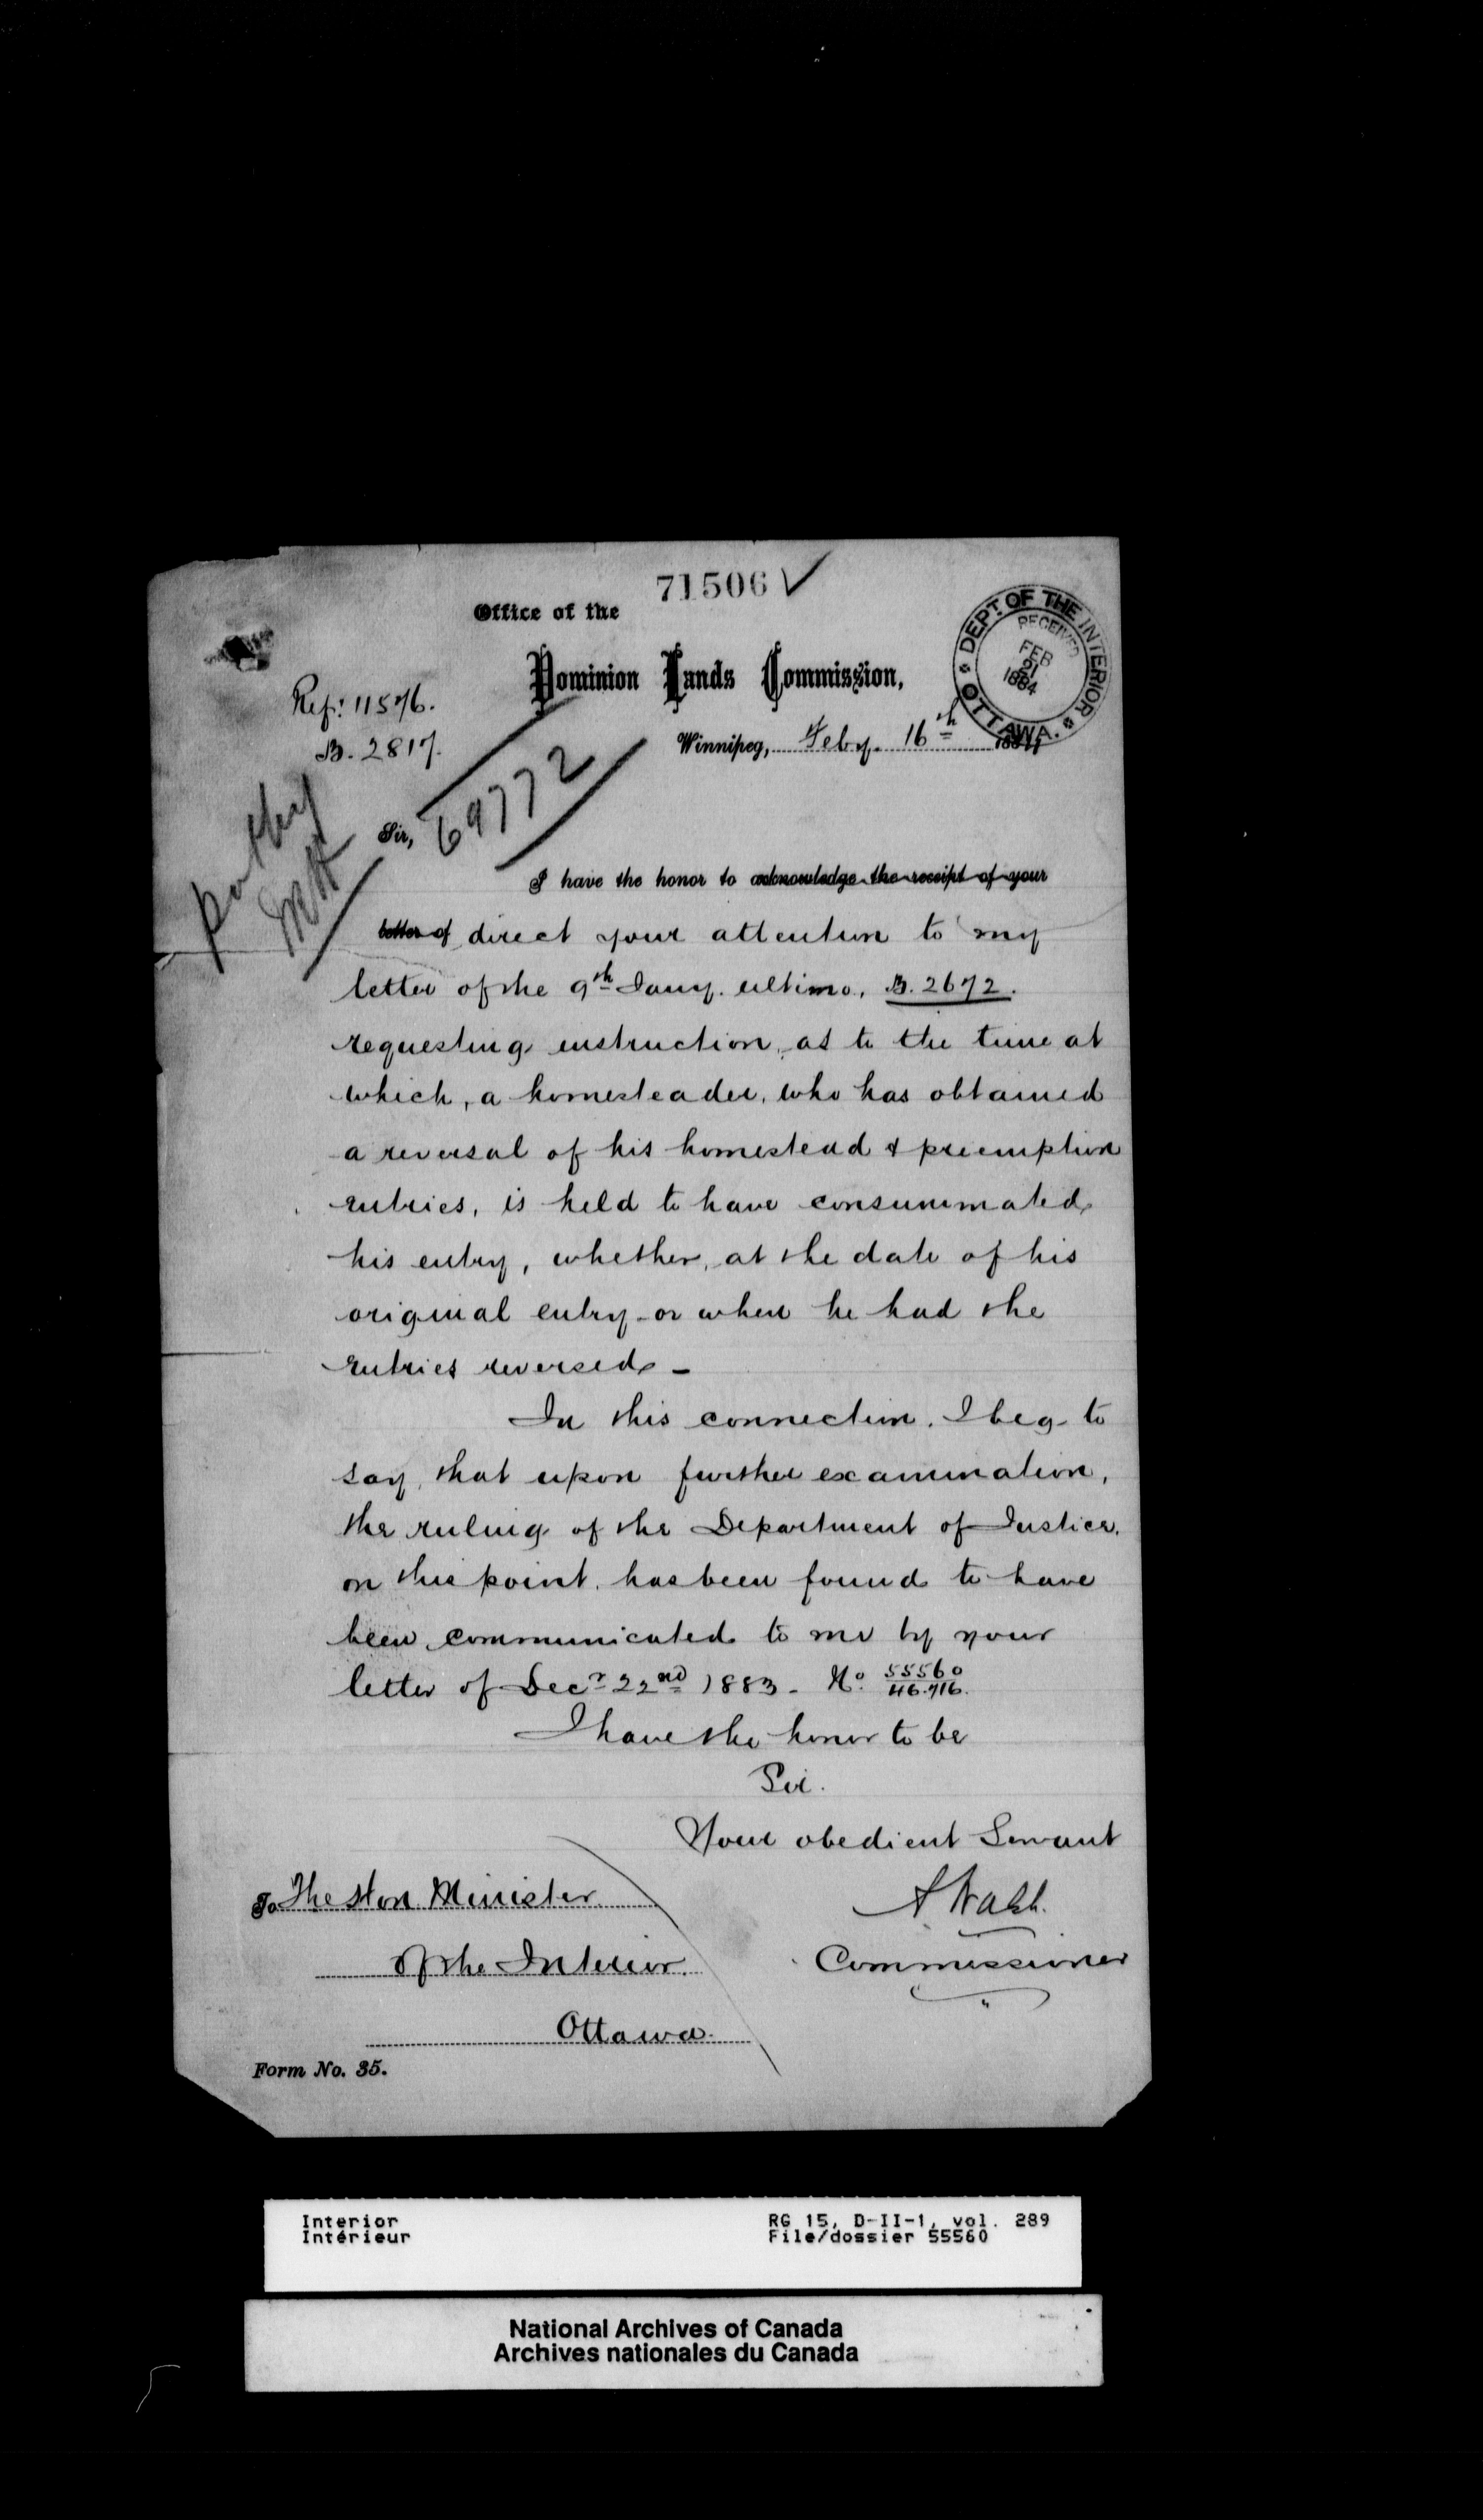 71506 ✓
Office of the
Dominion Lands Commission,
DEPT. OF THE INTERIOR
RECEIVED
FEB
21
1884
OTTAWA.
Ref: 11576.
B. 2817.
Winnipeg, Feby. 16th 1884
69772
Sir,
I have the honor to acknowledge the receipt of your
letter of direct your attention to my
letter of the 9th Jany. ultimo, B. 2672.
requesting instruction, as to the time at
which, a homesteader, who has obtained
a reversal of his homestead & preemption
entries, is held to have consummated
his entry, whether, at the date of his
original entry - or when he had the
entries reversed -
In this connection, I beg to
say, that upon further examination,
the ruling of the Department of Justice,
on this point, has been found to have
been communicated to me by your
letter of Decr 22nd 1883 - No. 55560
46.716.
I have the honor to be
Sir.
Your obedient Servant
A Walsh.
Commissioner
To The Hon Minister
of the Interior.
Ottawa.
Form No. 35.
Interior
Intérieur
RG 15, D-II-1, vol. 289
File/dossier 55560
National Archives of Canada
Archives nationales du Canada